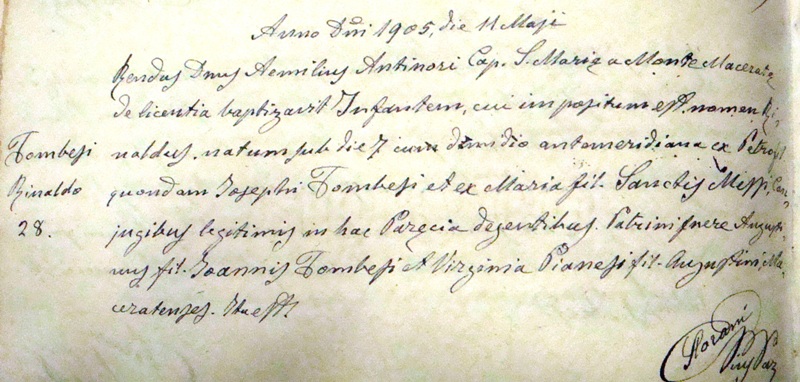 Anno Dñi 1905, die 11 Maji
Rendus Dnus Aemilius Antinori Cap. S. Mariæ a Monte Maceratæ
de licentia baptizavit Infantem, cui impositum est nomen Ri-
naldus, natum sub die 7 cum dimidio antemeridiana ex Petro fil.
Tombesi
quondam Josephi Tombesi et ex Maria fil. Sanctis Messi, Con-
Rinaldo
jugibus legitimis in hac Paræcia degentibus. Patrini fuere Augusti-
28.
nus fil. Joannis Tombesi et Virginia Pianesi fil. Augustini, Ma-
ceratenses. Ita est.
Florani
Pius Par